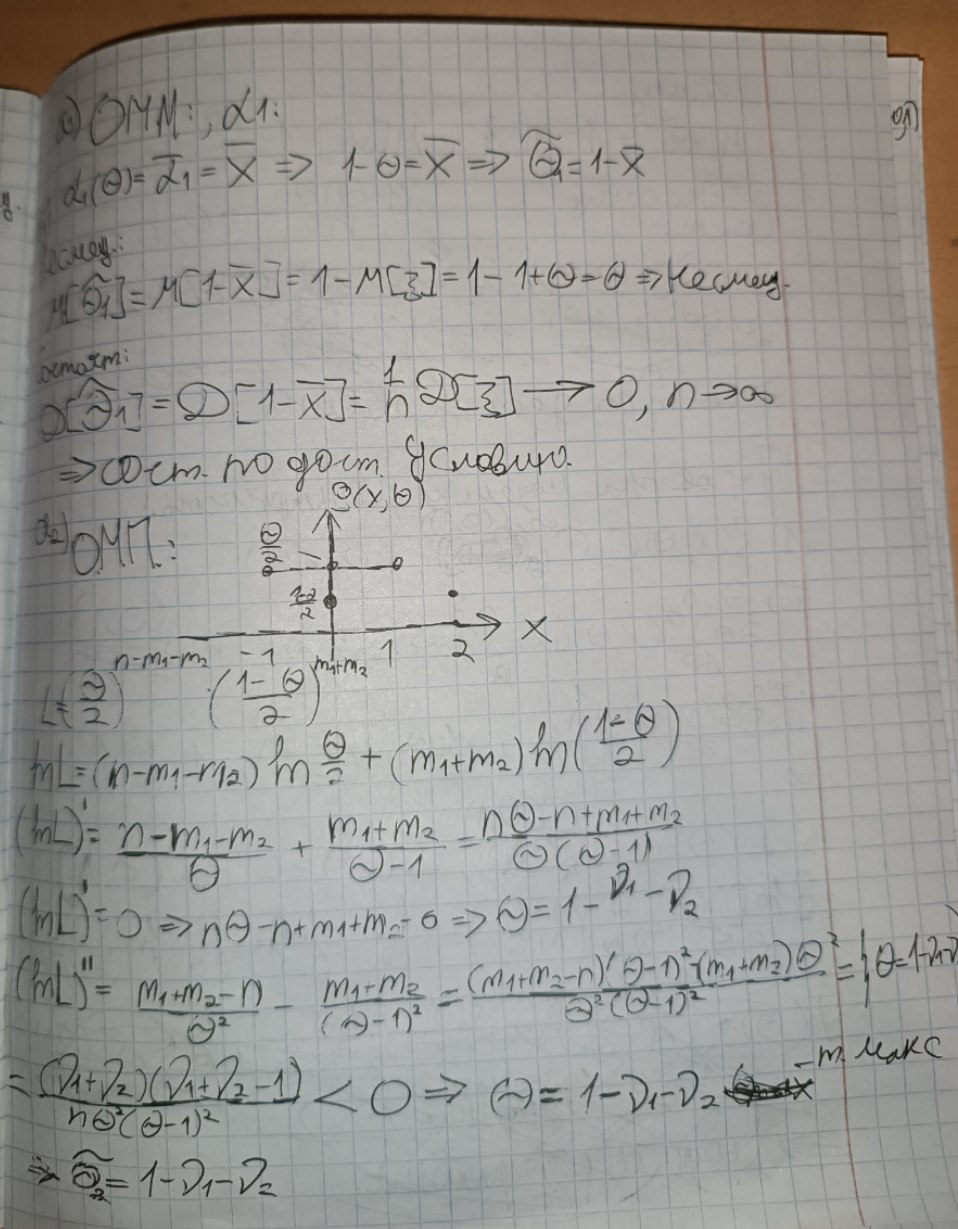 a) ОММ:, α1:
α₁(θ) = α̅₁ = X̅ ⇒ 1-θ = X̅ ⇒ θ̃₁ = 1-X̅
M[θ̃₁] = M[1-X̅] = 1-M[ξ] = 1-1+θ = θ ⇒ несмещ.
D[θ̃₁] = D[1-X̅] = 1/n D[ξ] → 0, n→∞
⇒ сост. по дост. условию.
a₂) ОМП:
θ(x,θ)
θ/2
-1 1 2 x
L = (θ/2)^(n-m₁-m₂) ((1-θ)/2)^(m₁+m₂)
lnL = (n-m₁-m₂) ln θ/2 + (m₁+m₂) ln((1-θ)/2)
(lnL)' = (n-m₁-m₂)/θ + (m₁+m₂)/(θ-1) = (nθ-n+m₁+m₂)/(θ(θ-1))
(lnL)' = 0 ⇒ nθ-n+m₁+m₂ = 0 ⇒ θ = 1-ν₁-ν₂
(lnL)'' = (m₁+m₂-n)/θ² - (m₁+m₂)/(θ-1)² = ((m₁+m₂-n)(θ-1)²-(m₁+m₂)θ²)/(θ²(θ-1)²) = {θ=1-ν₁-ν
= (ν₁+ν₂)(ν₁+ν₂-1)/(nθ²(θ-1)²) < 0 ⇒ θ = 1-ν₁-ν₂ -т. макс
⇒ θ̃₂ = 1-ν₁-ν₂